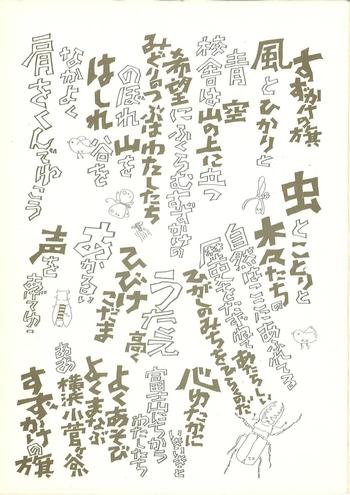 すずかけの旗
風とひかりと
青空
校舎は山の上に立つ
希望にふくらむすずかけの
みどりのつぶはわたしたち
のぼれ山を
はしれ谷を
なかよく
肩をくんでゆこう
虫とことりと
木々たちの
自然はここにあふれてる
歴史をたずねてあたらしい
ひがしのみちをひらくのだ
うたえ 高く
ひびけこだま
あかるい
声をあげてゆこう
心ゆたかに
いきいきと
富士山にちから
わたしたち
よくあそび
よくまなぶ
ああ 横浜小菅ヶ谷
すずかけの旗